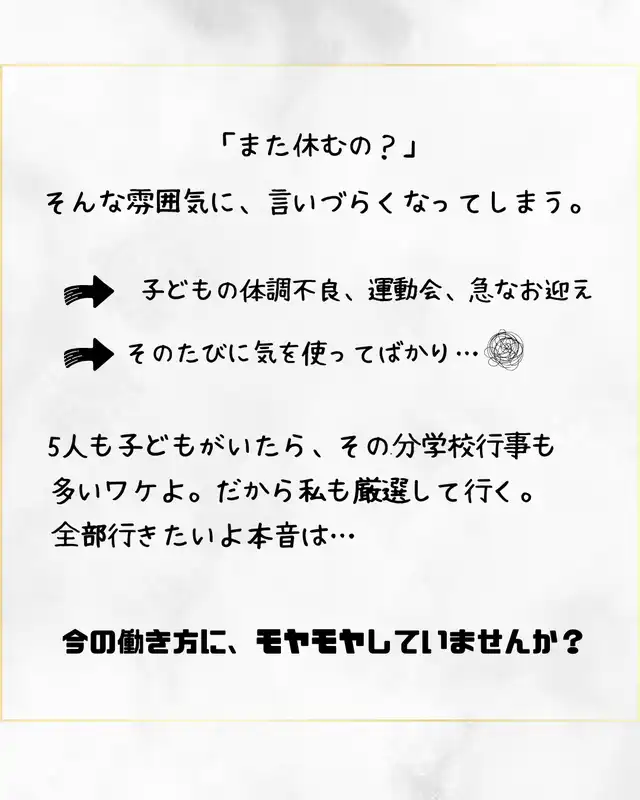 「また休むの？」
そんな雰囲気に、言いづらくなってしまう。
子どもの体調不良、運動会、急なお迎え
そのたびに気を使ってばかり…
5人も子どもがいたら、その分学校行事も
多いワケよ。だから私も厳選して行く。
全部行きたいよ本音は…
今の働き方に、モヤモヤしていませんか？